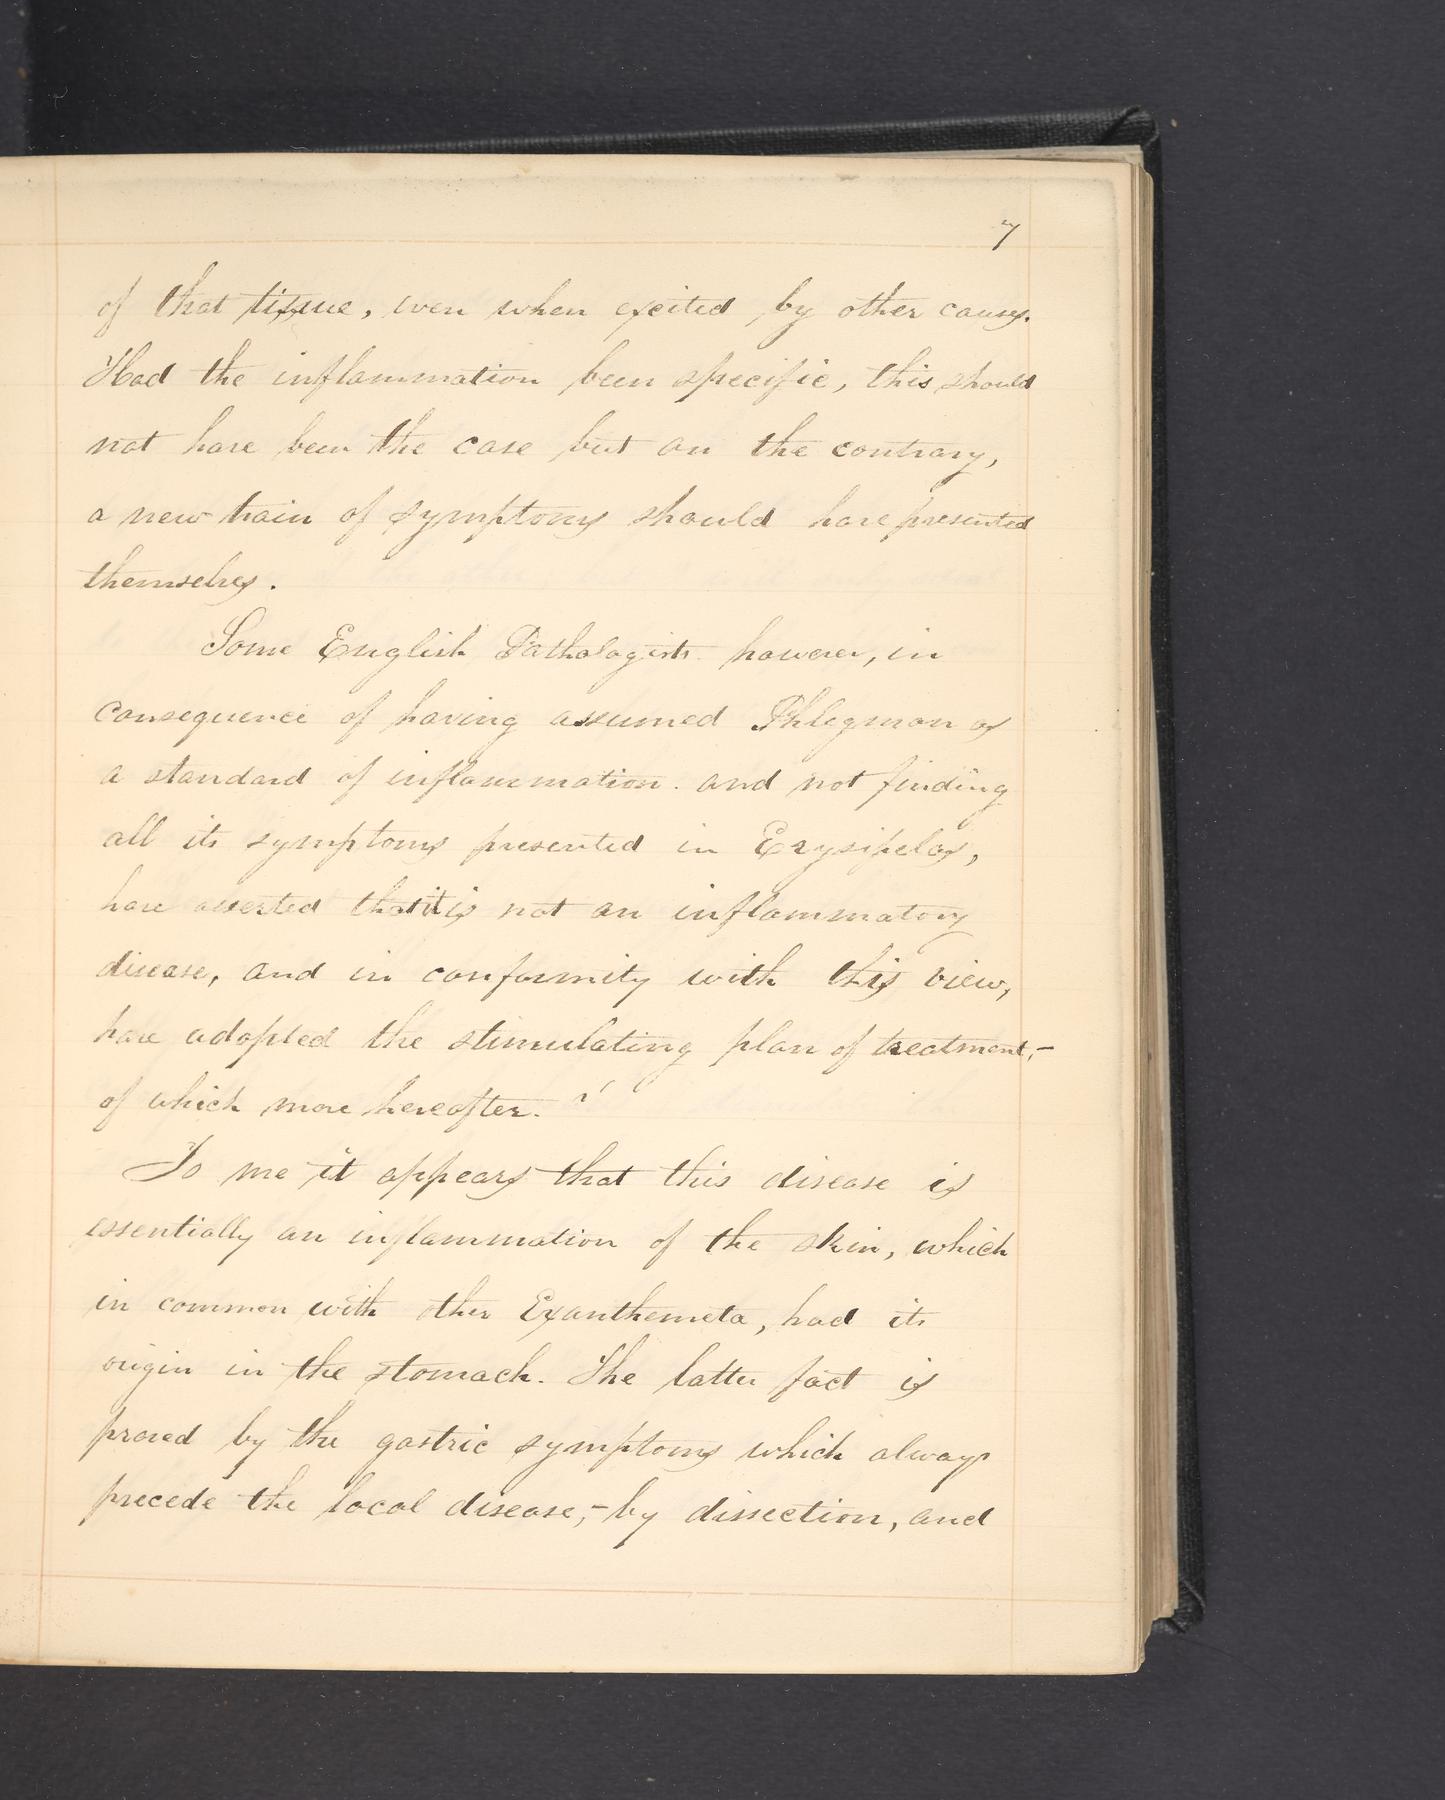 7
of that tissue, even when excited by other causes.
Had the inflammation been specific, this should
not have been the case but on the contrary,
a new train of symptoms should have presented
themselves.
Some English Pathologists however, in
consequence of having assumed Phlegmon as
a standard of inflammation. and not finding
all its symptoms presented in Erysipelas,
have asserted that it is not an inflammatory
disease, and in conformity with this view,
have adopted the stimulating plan of treatment,-
of which more hereafter.
To me it appears that this disease is
essentially an inflammation of the skin, which
in common with other Exanthemeta, had its
origin in the stomach. The latter fact is
proved by the gastric symptoms which always
precede the local disease,- by dissection, and